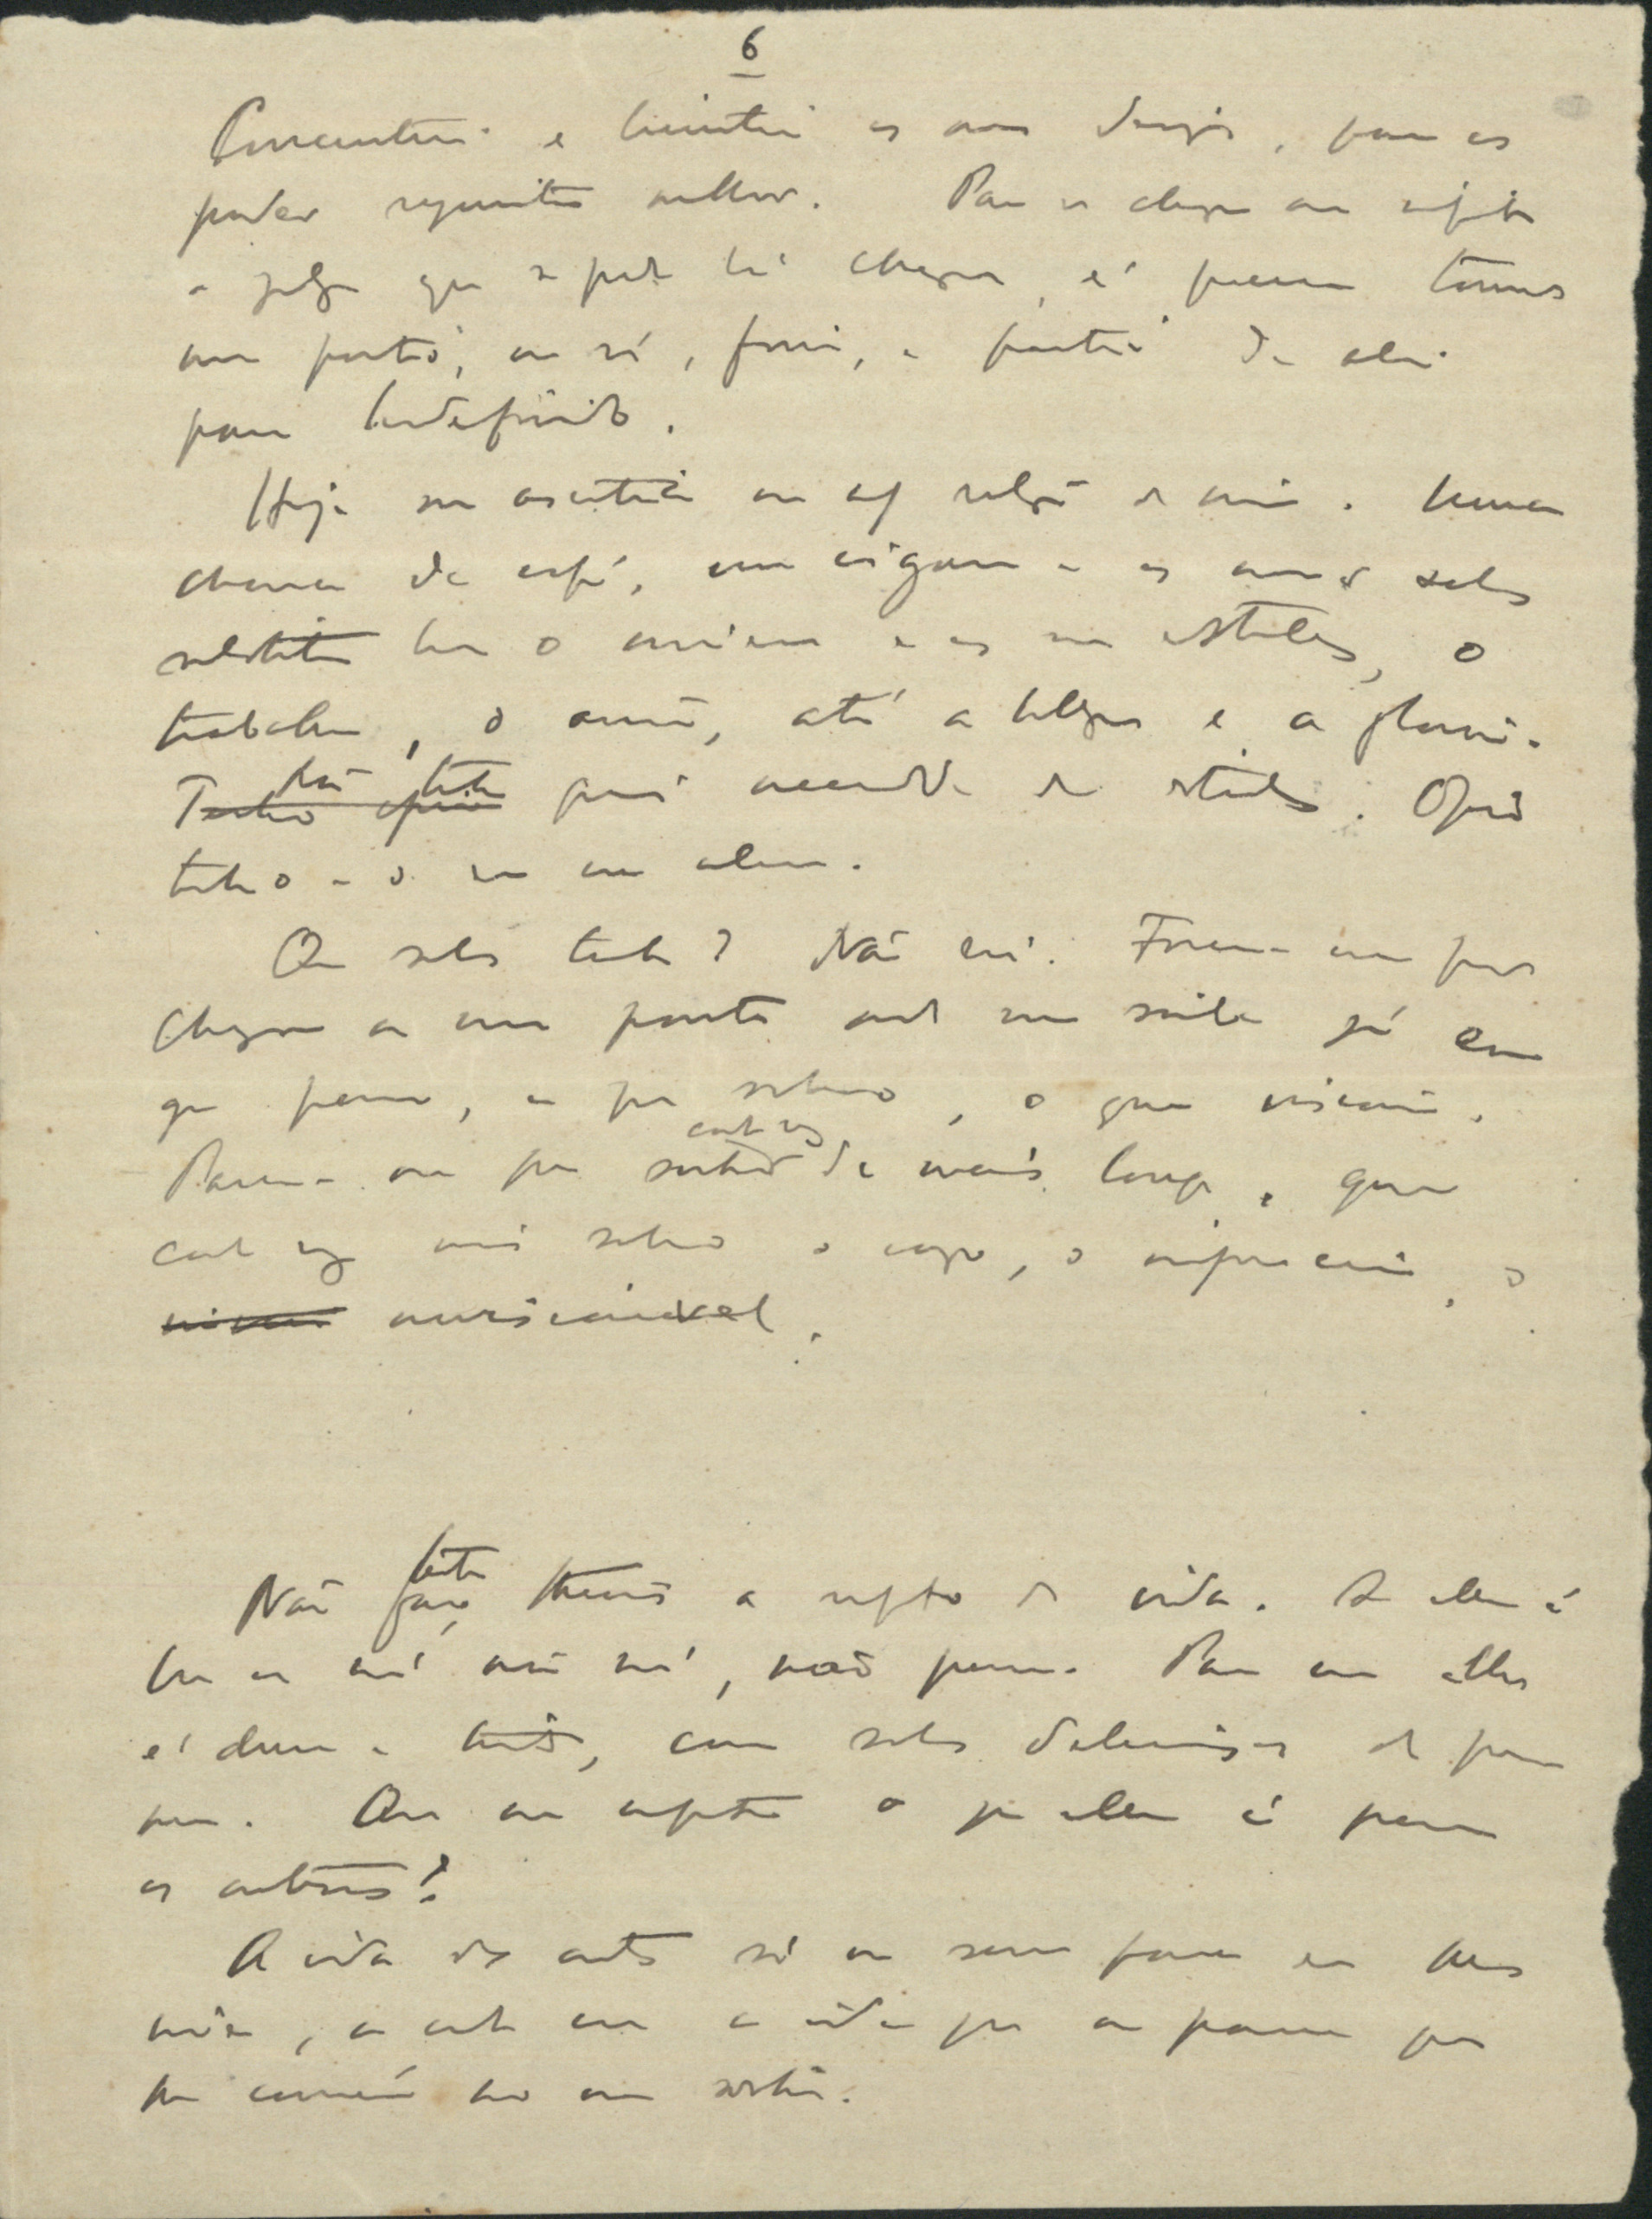 6
Concentrei e limitei os meus desejos, para os
poder requintar melhor. Para se chegar ao infinito
e julgo que se pode lá chegar, é preciso termos
um porto, um só, firme, e partir de ali
para Indefinido.
Hoje sou ascetico na religião de mim. Uma
chavena de café, um cigarro e os meus sonhos
substituem bem o universo e as suas estrellas, o
trabalho, o amor, até a belleza e a gloria.
Não tenho quasi necessidade de estimulos. Opio
tenho-o eu na alma.
Que sonhos tenho? Não sei. Forcei-me por
chegar a um ponto onde nem saiba já em
que penso, em que sonho, o que visiono.
Parece-me que sonho cada vez de mais longe, que
cada vez mais sonho o vago, o impreciso, o
invisionavel.
Não faço theorias a respeito da vida. Se ella é
boa ou má não sei, não penso. Para meus olhos
é dura e triste, com sonhos deliciosos de per
meio. Que me importa o que ella é para
os outros?
A vida dos outros só me serve para eu lhes
viver, a cada um a vida que me parece que
lhes convem no meu sonho.